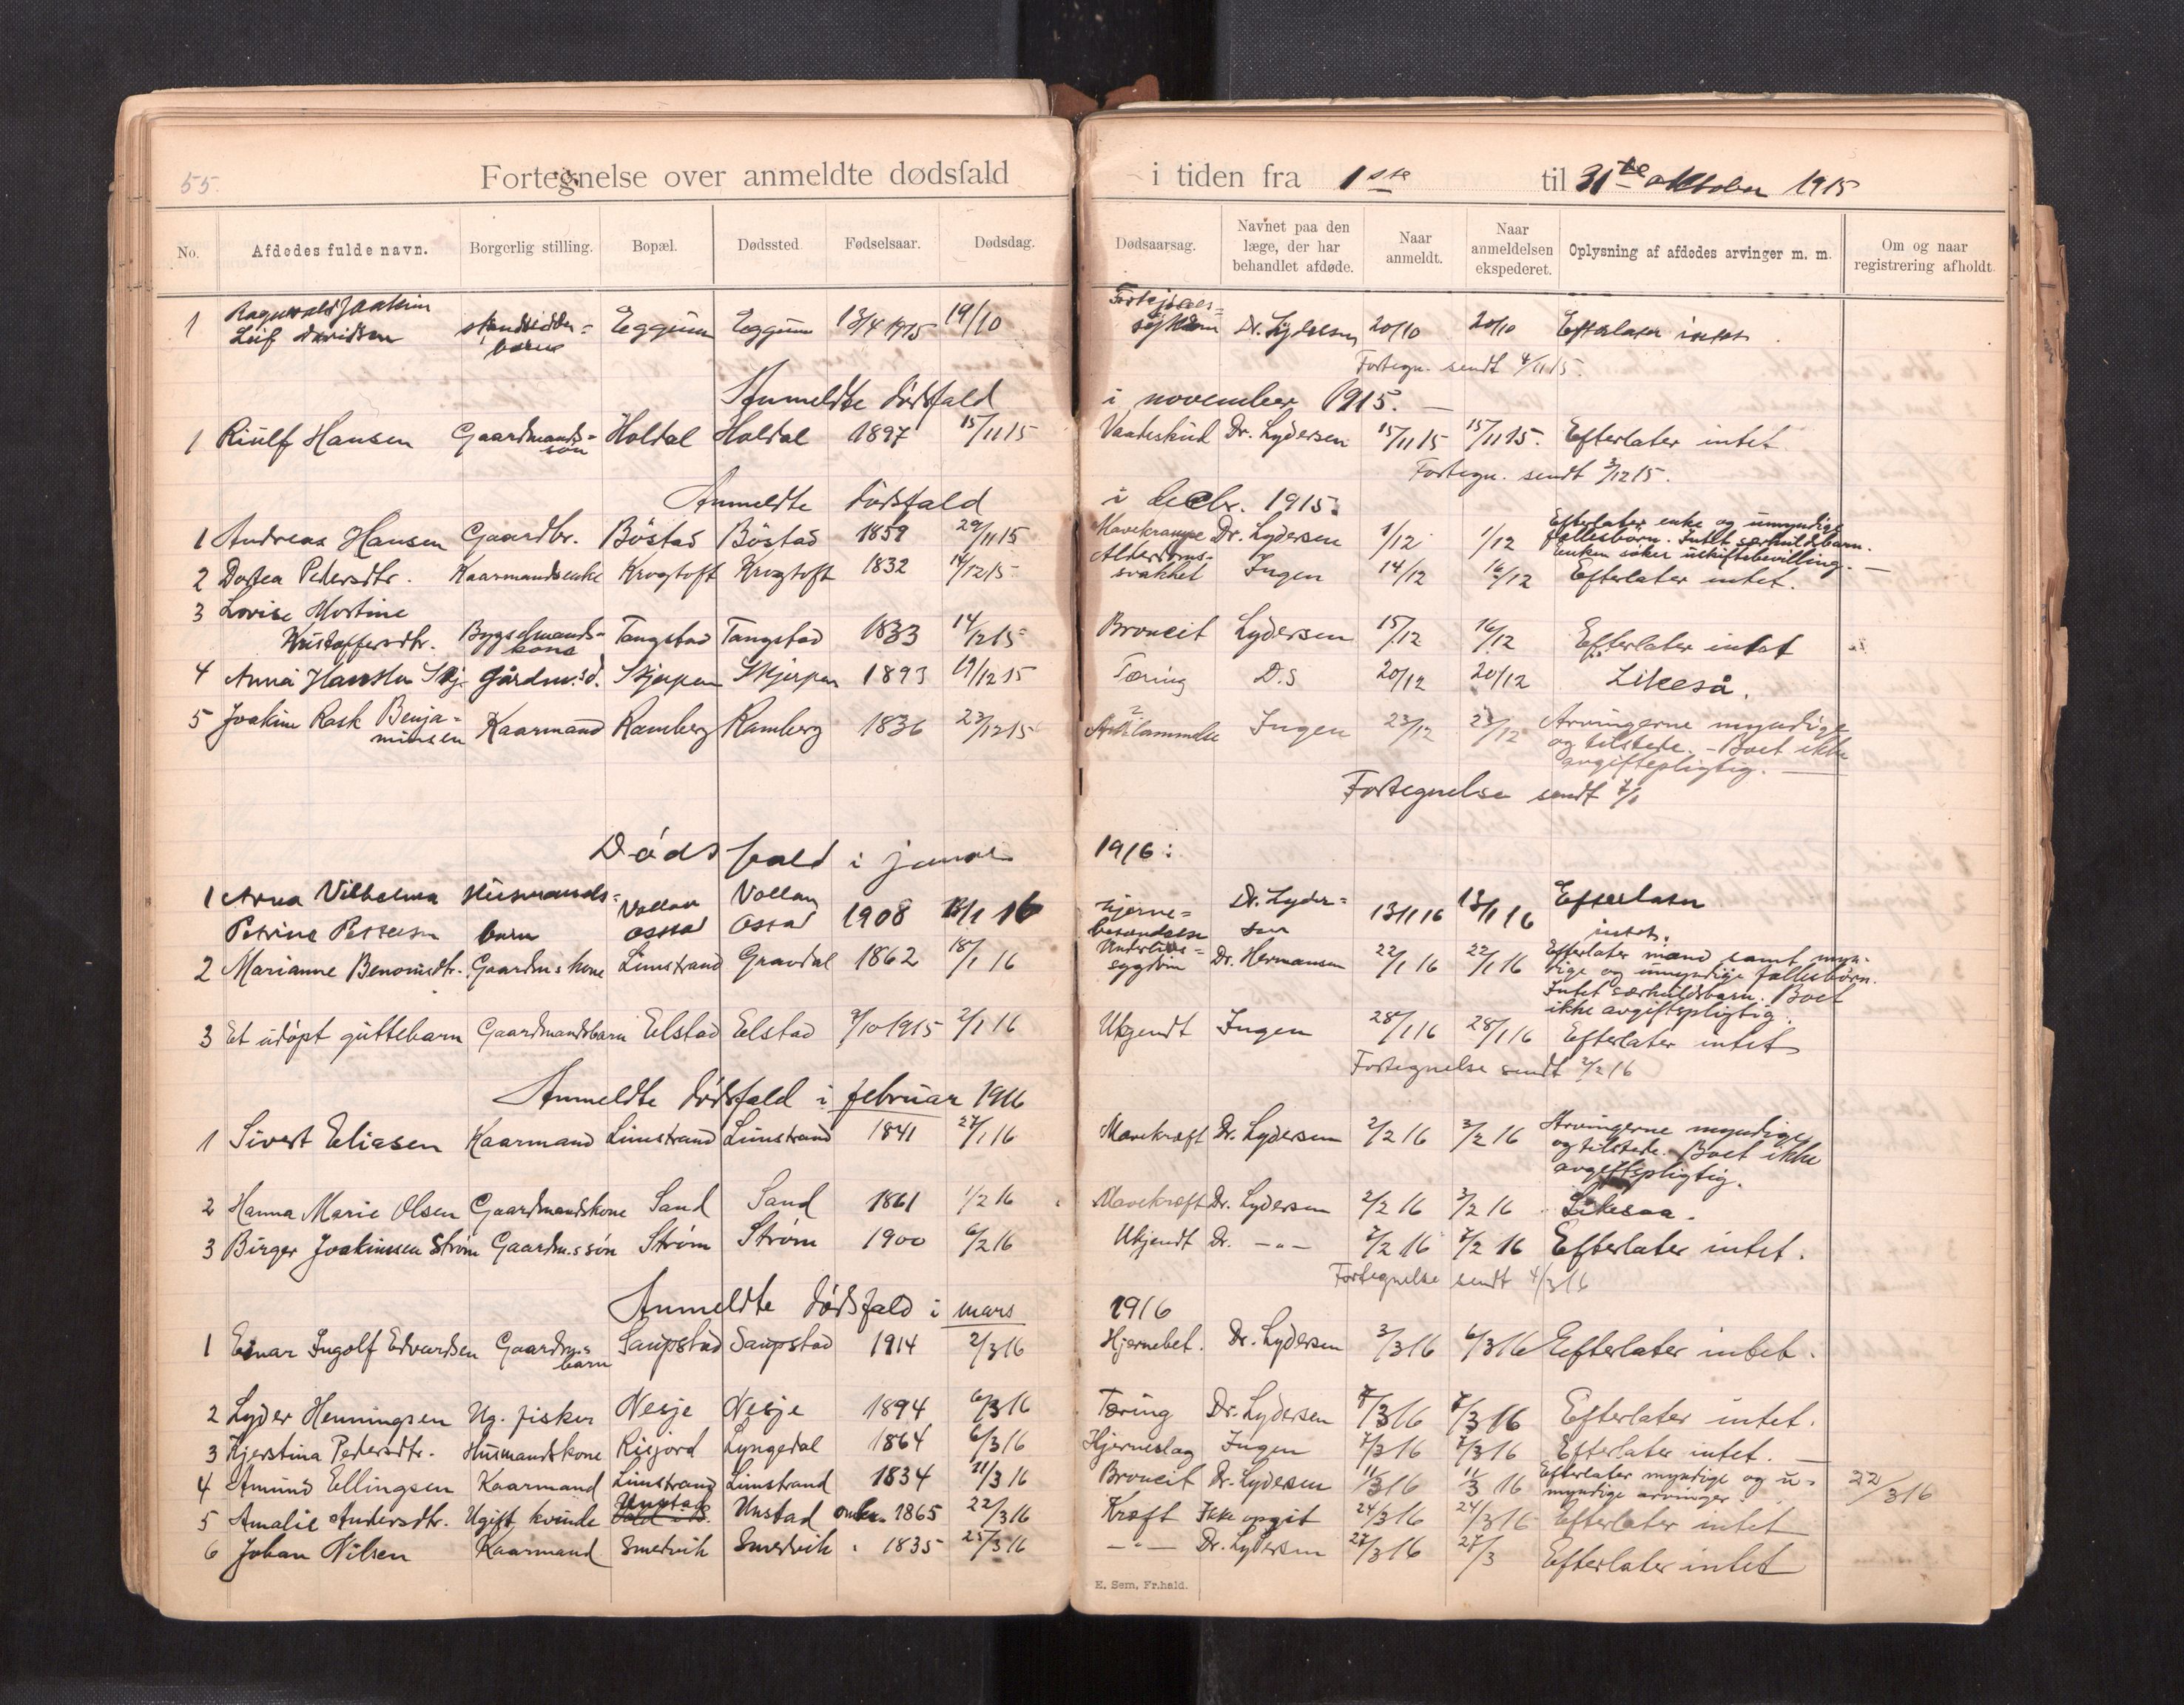 55.
Fortegnelse over anmeldte dødsfald i tiden fra 1ste til 31te oktober 1915
No. Afdødes fulde navn. Borgerlig stilling. Bopæl. Dødssted. Fødselsaar. Dødsdag. Dødsaarsag. Navnet paa den læge, der har behandlet afdøde. Naar anmeldt. Naar anmeldelsen ekspederet. Oplysning af afdødes arvinger m. m. Om og naar registrering afholdt.
1 Ragnvald Joakim
Leif Davidsen strandsidder= barn Eggum Eggum 13/4 1915 19/10 sykdom Dr. Lydersen 20/10 20/10 Efterlater intet.
Fortegn. sendt 4/11 15.
Anmeldte dødsfald i november 1915. —
1 Riulf Hansen Gaardmands= søn Holdal Holdal 1897 15/11 15 Vaadeskud Dr. Lydersen 15/11 15 15/11 15. Efterlater intet
Fortegn. sendt 3/12 15.
Anmeldte dødsfald i decbr. 1915.
1 Andreas Hansen Gaardbr. Böstad Böstad 1859 29/11 15 Mavekrampe Dr. Lydersen 1/12 1/12 Efterlater enke og umyndige
fællesbörn. Intet særkuldsbarn.
Enken söker uskiftebevilling. —
2 Dortea Pedersdtr. Kaarmandsenke Krogtoft Krogtoft 1832 14/12 15 Alderdoms-
svakhet Ingen 14/12 16/12 Efterlater intet.
3 Lovise Mortine
Kristoffersdtr. Bygselmands- kone Tangstad Tangstad 1833 14/12 15 Broncit Lydersen 15/12 16/12 Efterlater intet
4 Anna Hansdtr Skj. gårdm.sd. Skjerpen Skjerpen 1893 19/12 15 Tæring D.S 20/12 20/12 Likeså.
5 Joakim Rask Benja=
minsen Kaarmand Ramberg Ramberg 1836 23/12 15 Ingen 23/12 23/12 Arvingerne myndige
og tilstede. - Boet ikke
avgiftspligtig. —
Fortegnelse sendt 7/1
Dødsfald i januar 1916:
1 Anna Vilhelma
Petrine Pettersen Husmands=
barn Vollan
Ossad Vollan
Ossad 1908 11/1 16 Hjerne=
betændelse Dr. Lyder=
sen 13/1 16 13/1 16 Efterlater
intet.
2 Marianne Benonisdtr. Gaardm.s kone Limstrand Gravdal 1862 18/1 16 Underlivs=
sygdom Dr. Hermansen 22/1 16 22/1 16 Efterlater mand samt myn-
dige og umyndige fællesbørn.
Intet særkuldsbarn. Boet
ikke avgiftspligtig.
3 Et udöpt guttebarn Gaardmandsbarn Eelstad Eelstad 9/10 1915 2/1 16 Ukjendt Ingen 28/1 16 28/1 16 Efterlater intet
Fortegnelse sendt 2/2 16
Anmeldte dödsfald i februar 1916
1 Sivert Eliasen Kaarmand Limstrand Limstrand 1841 27/1 16 Mavekræft Dr. Lydersen 2/2 16 3/2 16 Arvingerne myndige
og tilstede. Boet ikke
avgiftspligtig.
2 Hanna Marie Olsen Gaardmandskone Sand Sand 1861 1/2 16 Mavekræft Dr. Lydersen 2/2 16 3/2 16 Likesaa.
3 Birger Joakimsen Strøm Gaardm.s søn Strøm Strøm 1900 6/2 16 Ukjendt Dr. —„— 7/2 16 7/2 16 Efterlater intet.
Fortegnelse sendt 4/3 16
Anmeldte dødsfald i mars 1916
1 Einar Ingolf Edvardsen Gaardm.s barn Saupstad Saupstad 1914 2/3 16 Hjernebet. Dr. Lydersen 3/3 16 6/3 16 Efterlater intet.
2 Lyder Henningsen Ug. fisker Nesje Nesje 1894 6/3 16 Tæring Dr. Lydersen 7/3 16 7/3 16 Efterlater intet.
3 Kjerstina Pedersdtr. Husmandskone Risjord Lyngedal 1864 6/3 16 Hjerneslag Ingen 7/3 16 7/3 16 Efterlater intet. —
4 Amund Ellingsen Kaarmand Limstrand Limstrand 1834 11/3 16 Broncit Dr. Lydersen 11/3 16 11/3 16 Efterlater myndige og u-
myndige arvinger. 22/3 16
5 Amalie Andersdtr. Ugift kvinde Unstad Unstad omkr. 1865 22/3 16 Kræft Ikke opgit 24/3 16 24/3 16 Efterlater intet
6 Johan Nilsen Kaarmand Smedvik Smedvik 1835 25/3 16 —„— Dr. Lydersen 27/3 16 27/3 Efterlater intet
E. Sem, Fr.hald.